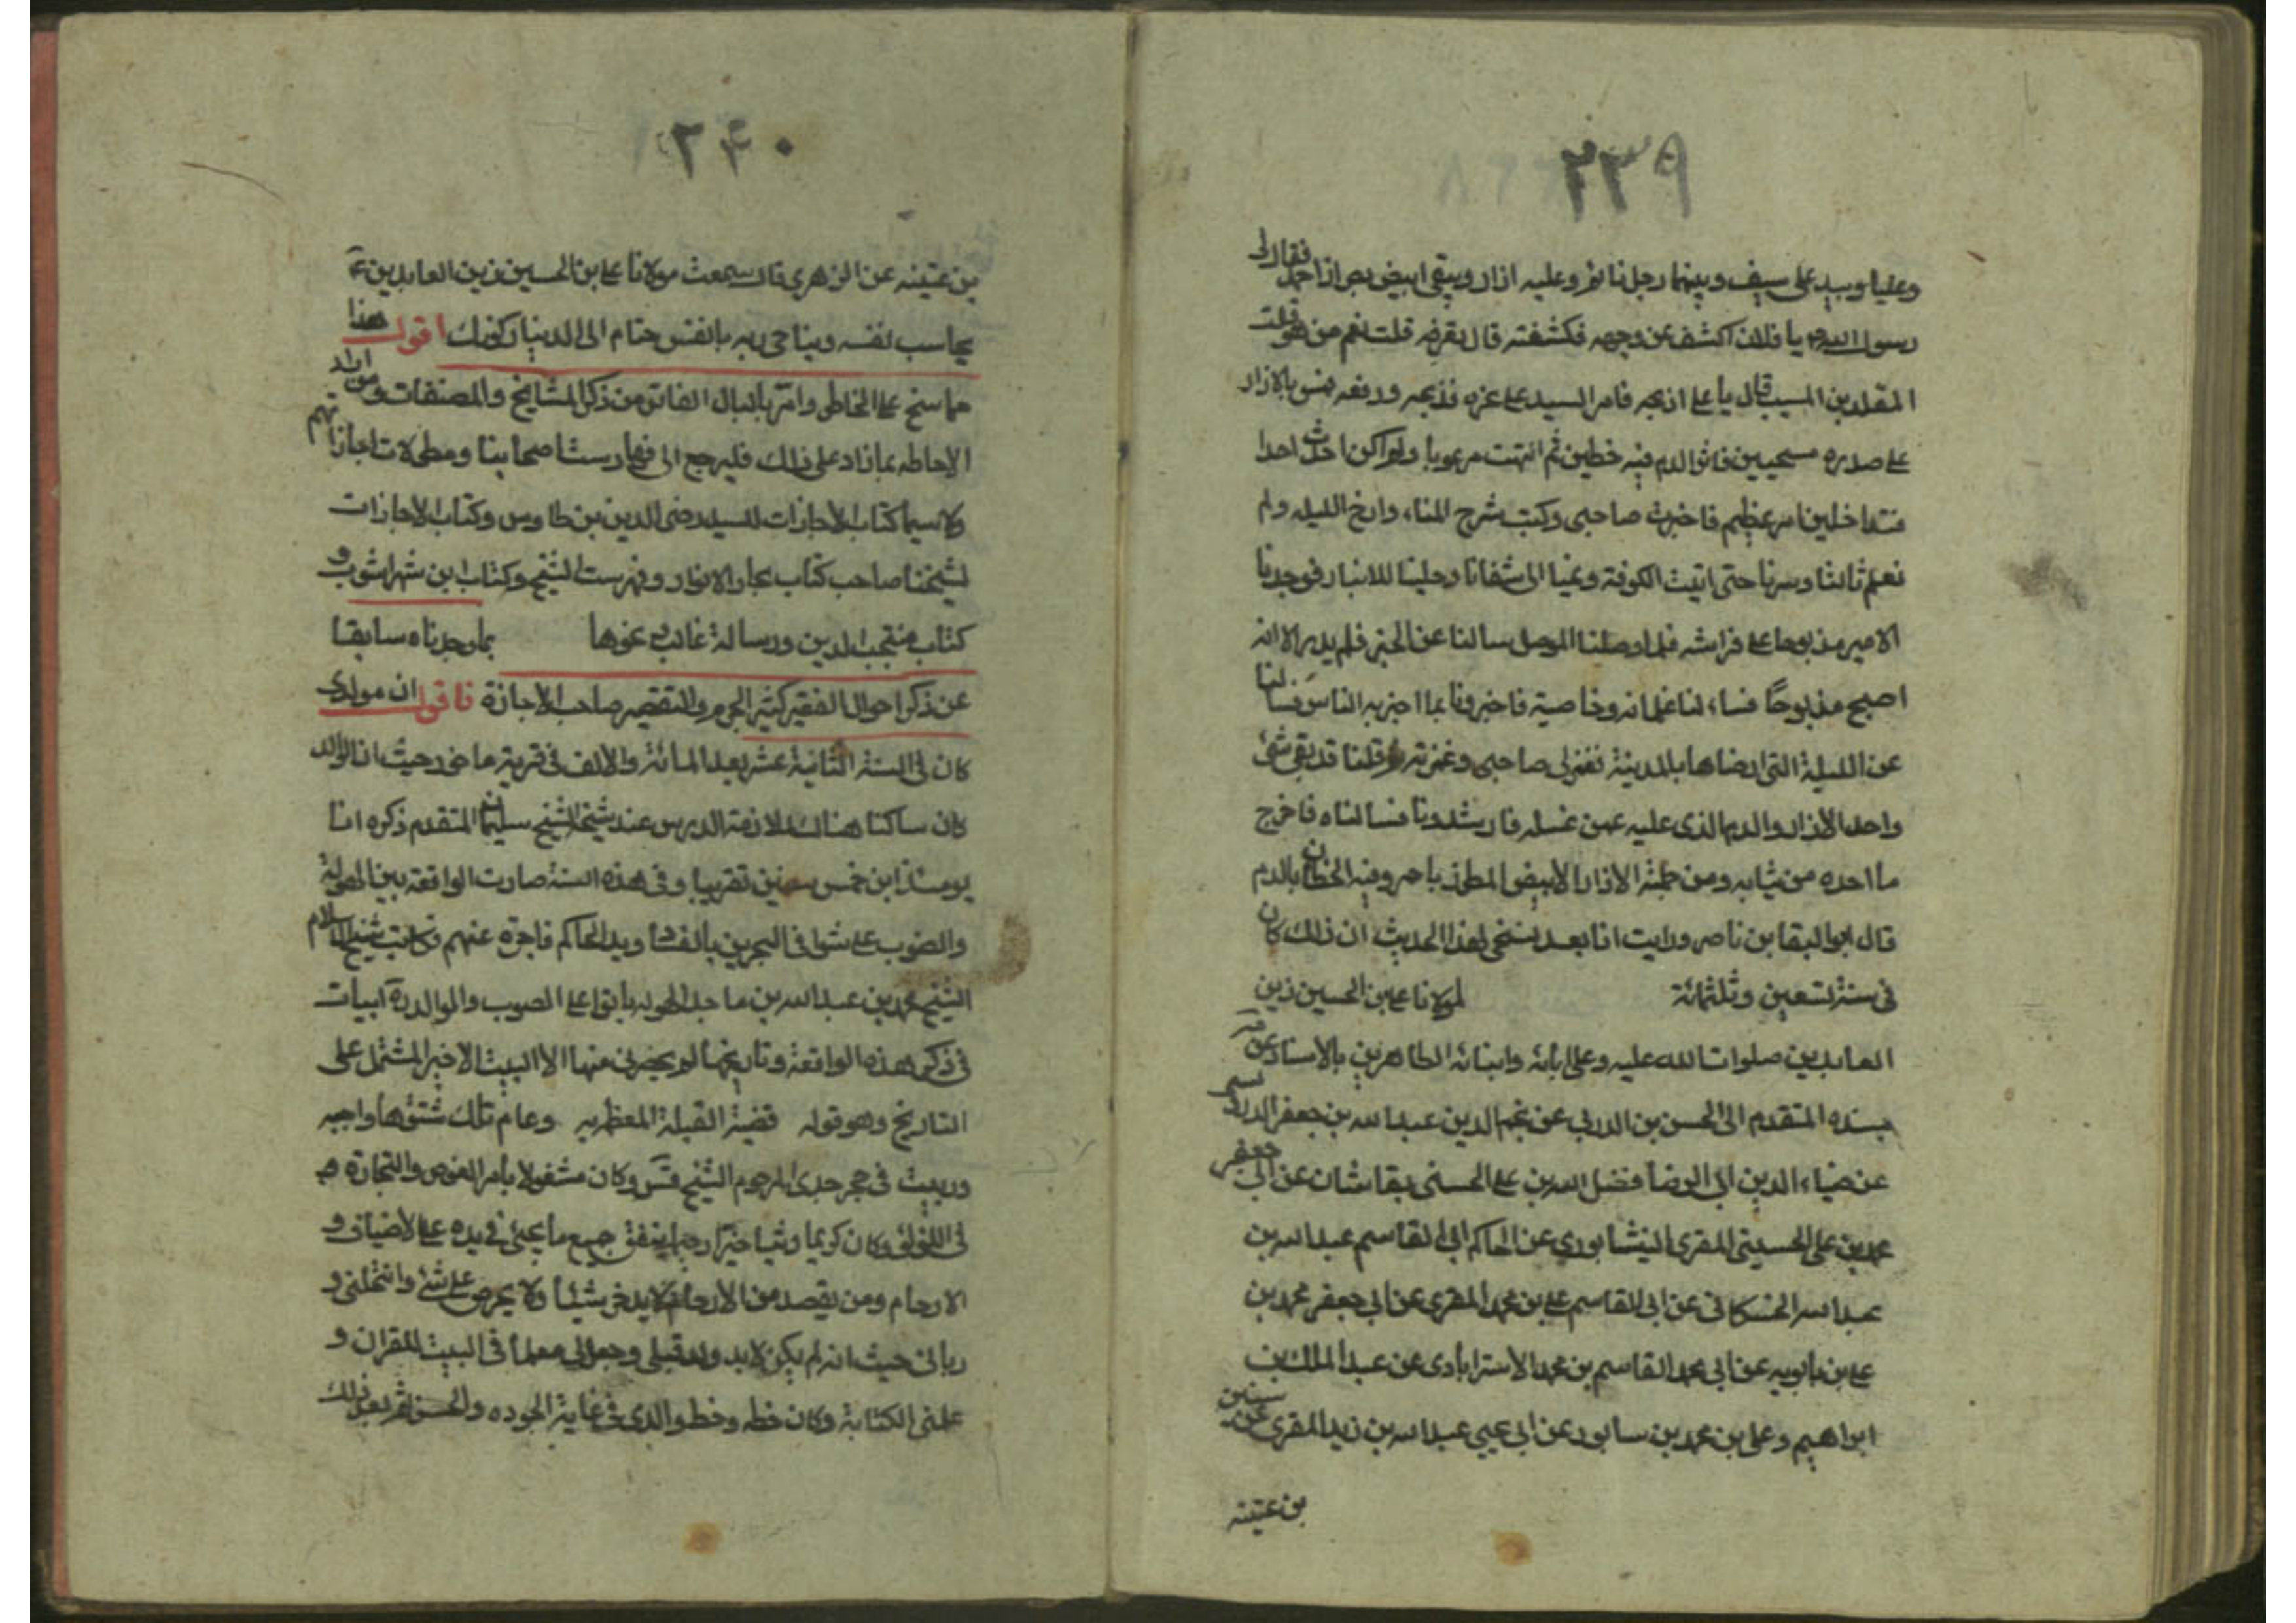 ٢٣٩
وعليا وبيده على سيف وبينهما رجل نائم وعليه ازار وبيقى ابيض بطراز احمر فقال لى
رسول الله ص يا فلان اكشف عن وجهه فكشفته قال تعرفه قلت نعم من هو قلت
المقلد بن المسيب قال يا على اذبحه فامر السيد على نحره فذبحه ودفعه بالازار
على صدره مسحيين فاثر الدم فيه خطين ثم انتهت مرعوبا ولو اكن احدث احدا
فتداخلني امر عظيم فاخبرت صاحبى وكتبت شرح المنام وارخ الليله ولم
نعلم ثالثا وسرنا حتى اتيت الكوفة وعنيا الى شفاثا ودخلينا للانبار فوجدنا
الامير مذبوحا على فراشه فلما وصلنا الموصل سالنا عن الخبر فلم يدر الا انه
اصبح مذبوحًا فساءلنا غلمانه وخاصية فاخبرونا بما اخبر به الناس فسالنا
عن الليلة التى ارضناها بالمدينة نفر لى صاحبى وغمزته وقلنا قد بقى شئ
واحد الازار والدم الذى عليه عمن غسله فارشدونا فسالناه فاخرج
ما اخذه من ثيابه ومن جملته الازار الابيض المطرز باحمر وفيه الخطان بالدم
قال ابو البقا بن ناصر ورايت انا بعد نسخى لهذا الحديث ان ذلك كان
فى سنة تسعين وثلثمائة لمولانا على بن الحسين زين
العابدين صلوات الله عليه وعلى ابائه وابنائه الطاهرين بالاسناد عن
بسنده المتقدم الى الحسن بن الدربي عن نجم الدين عبد الله بن جعفر الدوريستى
عن ضياء الدين ابى الرضا فضل الله بن على الحسنى بقاشان عن ابى جعفر
محمد بن على الحسينى المقرى النيشابورى عن الحاكم ابى القاسم عبد الله بن
عبد الله الحسكانى عن ابى القاسم على بن محمد المقرى عن ابى جعفر محمد بن
على بن بابويه عن ابى محمد القاسم بن محمد الاسترابادى عن عبد الملك بن
ابراهيم وعلى بن محمد بن سابور عن ابى عيى عبد الله بن زيد المقرى عن سنين
بن عتينه
٢٤٠
بن عتينه عن الزهري قال سمعت مولانا على بن الحسين زين العابدين ع
يحاسب نفسه ويناجى ربه يا نفس حتام الى الدنيا ركونك اقول هذا
مما سنح على الخاطر وامر بالبال الفاتر من ذكر المشايخ والمصنفات ومن اراد
الاحاطه بما زاد على ذلك فليرجع الى فهارست اصحابنا ومطولات اجازاتهم
ولا سيما كتاب الاجازات للسيد رضى الدين بن طاوس وكتاب الاجازات
لشيخنا صاحب كتاب بحار الانوار وفهرست الشيخ وكتاب ابن شهراشوب و
كتاب منتجب الدين ورسالة غالب نحوها بما وجدناه سابقا
عن ذكر احوال الفقير كثير الجرم والتقصير صاحب الاجازة فاقول ان مولدى
كان فى السنة الثانية عشر بعد المائة والالف فى قرية ماخور حيث ان الوالد
كان ساكنا هناك لملازمة الدرس عند شيخه الشيخ سليمان المتقدم ذكره انا
يومئذ ابن خمس سنين تقريبا وفى هذه السنة صارت الواقعة بين الهولة
والعتوب عاثوا فى البحرين بالفساد ويد الحاكم قاصرة عنهم فكاتب شيخ الاسلام
الشيخ محمد بن عبد الله بن ماجد الهوله ياتوا على العتوب والوالد ره ابيات
فى ذكر هذه الواقعة وتاريخها لم يحضرنى منها الا البيت الاخير المشتمل على
التاريخ وهو قوله قضية القبلة المعظبه وعام تلك شتتوها واجبه
وربيت فى حجر جدى المرحوم الشيخ قس وكان مشغولا بامر الغوص والتجارة هـ
فى اللؤلؤ وكان كريما دينا خيرا رحبا ينفق جميع ما يجئ فى يده على الاضياف و
الارحام ومن يقصد من الارحام لا يدخر شيئا ولا يحرص على شئ وانتحلنى و
ربانى حيث انه لم يكن لابيه ولد قبلى وجعل لى معلما فى البيت للقران و
علمنى الكتابة وكان خطه وخط والدى فى غاية الجوده والحسن ثم بعد ذلك